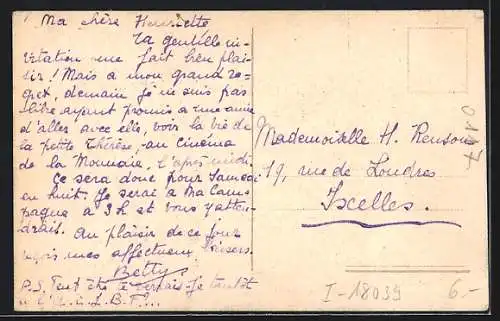 Ma chère Henriette
Ta gentille in-
vitation me fait bien plai-
sir! Mais à mon grand re-
gret, demain je ne suis pas
libre ayant promis à une amie
d'aller avec elle, voir la vie de
la petite Thérèse, au cinéma
de la Monnaie, l'après midi
Ce sera donc pour Samedi
en huit. Je serai à
à 3h et vous y atten-
drais. Au plaisir de ce jour
mes affectueux baisers.
Betty
P.S. Peut être te verrais-je tantôt
à
Mademoiselle H. Renson
19, rue de Londres
Ixelles.
I-18039
6.-